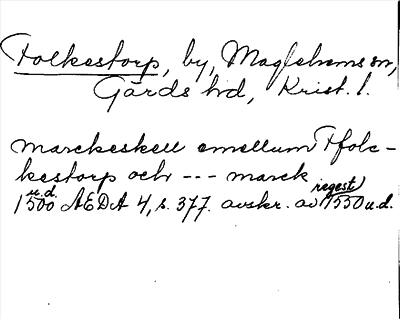 Folkestorp, by, Maglehems sn,
Gärds hd, Krist. l.
marckeskell emellum Ffolc-
kestorp och --- marck
u.d. regest
1500 ÆDA 4, s. 377. avskr. av 1550 u.d.